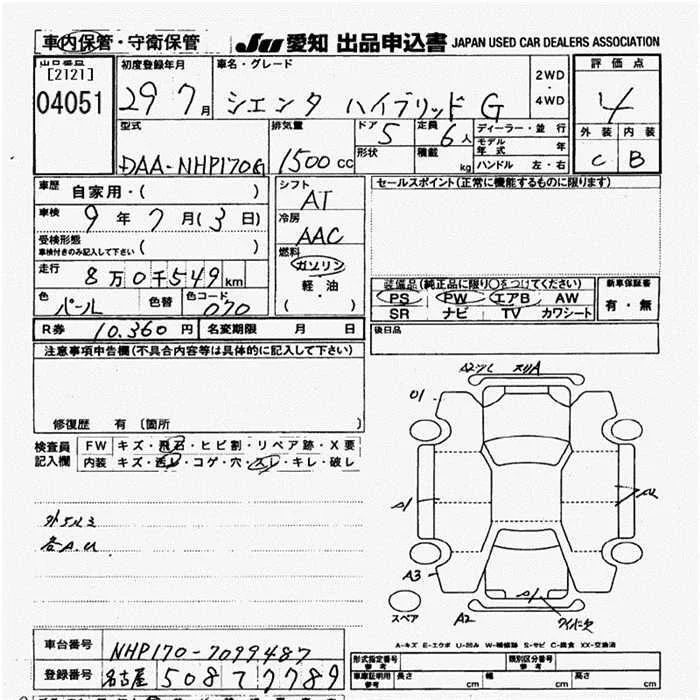 車内保管・守衛保管 JU 愛知 出品申込書 JAPAN USED CAR DEALERS ASSOCIATION
出品番号 初度登録年月 車名・グレード 評価点
[2121] 2WD
04051 29 7月 シエンタ ハイブリッド G ・ 4
4WD
型式 排気量 ドア 定員 ディーラー・並行 外装 内装
5 6人 モデル年式 年
DAA-NHP170G 1500cc 形状 積載 kg ハンドル 左・右 C B
車歴 自家用・( ) シフト AT セールスポイント(正常に機能するものに限ります)
車検 9年7月(3日) 冷房 AAC
受検形態 車検付きのみ記入して下さい ( ) 燃料
走行 8万0千549km ガソリン 装備品(純正品に限り○をつけてください) 新車保証書
色 パール 色替 色コード 070 軽・油 PS PW エアB AW 有・無
( ) SR ナビ TV カワシート
R券 10,360円 名変期限 月 日 後日品
注意事項申告欄(不具合内容等は具体的に記入して下さい)
修復歴 有 〔箇所 〕
検査員 FW キズ・飛石・ヒビ割・リペア跡・X要
記入欄 内装 キズ・汚レ・コゲ・穴・スレ・キレ・破レ
各A.U
01
A1
A3
A1
A2
スペア
A-キズ E-エクボ U-凹み W-補修跡 S-サビ C-腐食 XX-交換済
車台番号 NHP170-7099487 形式指定番号 参考 類別区分番号 参考
登録番号 名古屋 508 7789 車庫証明用 参考 長さ cm 幅 cm 高さ cm